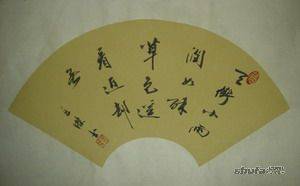 天街小雨
润如酥
草色遥
看近却
无